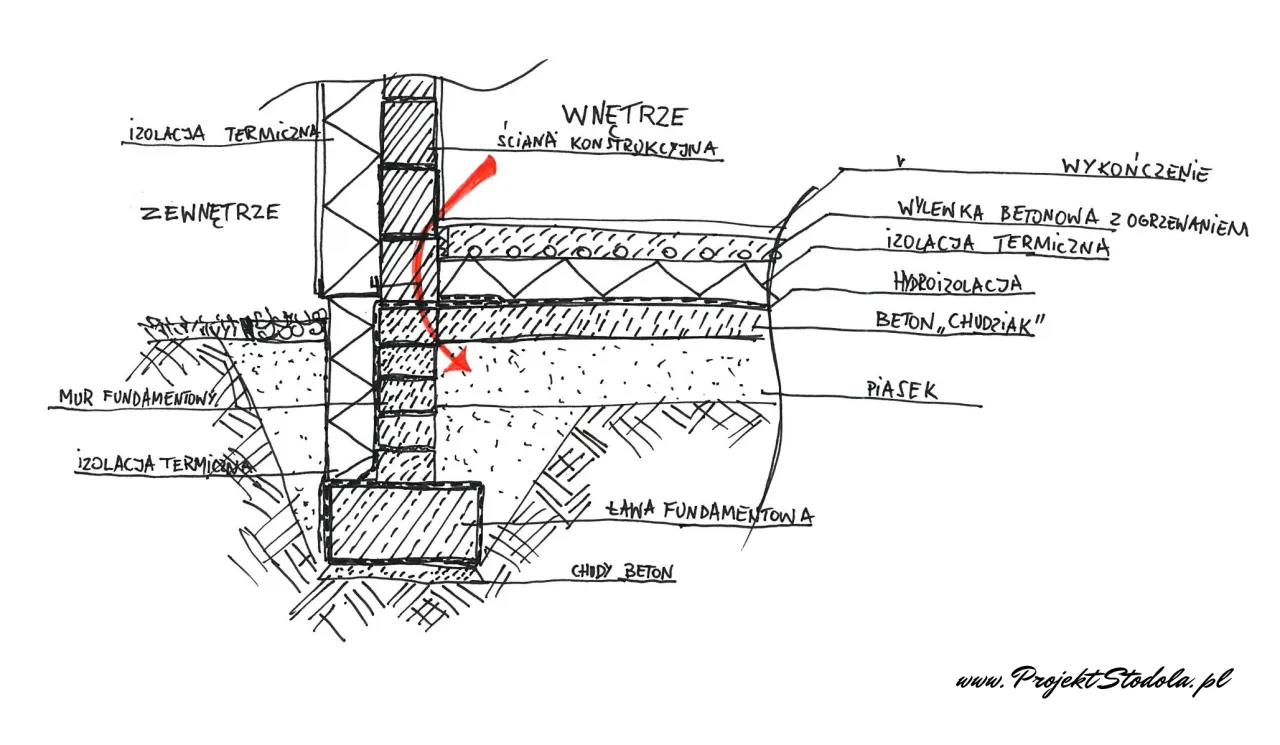 WNĘTRZE
IZOLACJA TERMICZNA
ŚCIANA KONSTRUKCYJNA
ZEWNĘTRZE
WYKOŃCZENIE
WYLEWKA BETONOWA Z OGRZEWANIEM
IZOLACJA TERMICZNA
HYDROIZOLACJA
BETON „CHUDZIAK"
MUR FUNDAMENTOWY
PIASEK
IZOLACJA TERMICZNA
ŁAWA FUNDAMENTOWA
CHUDY BETON
www.ProjektStodola.pl